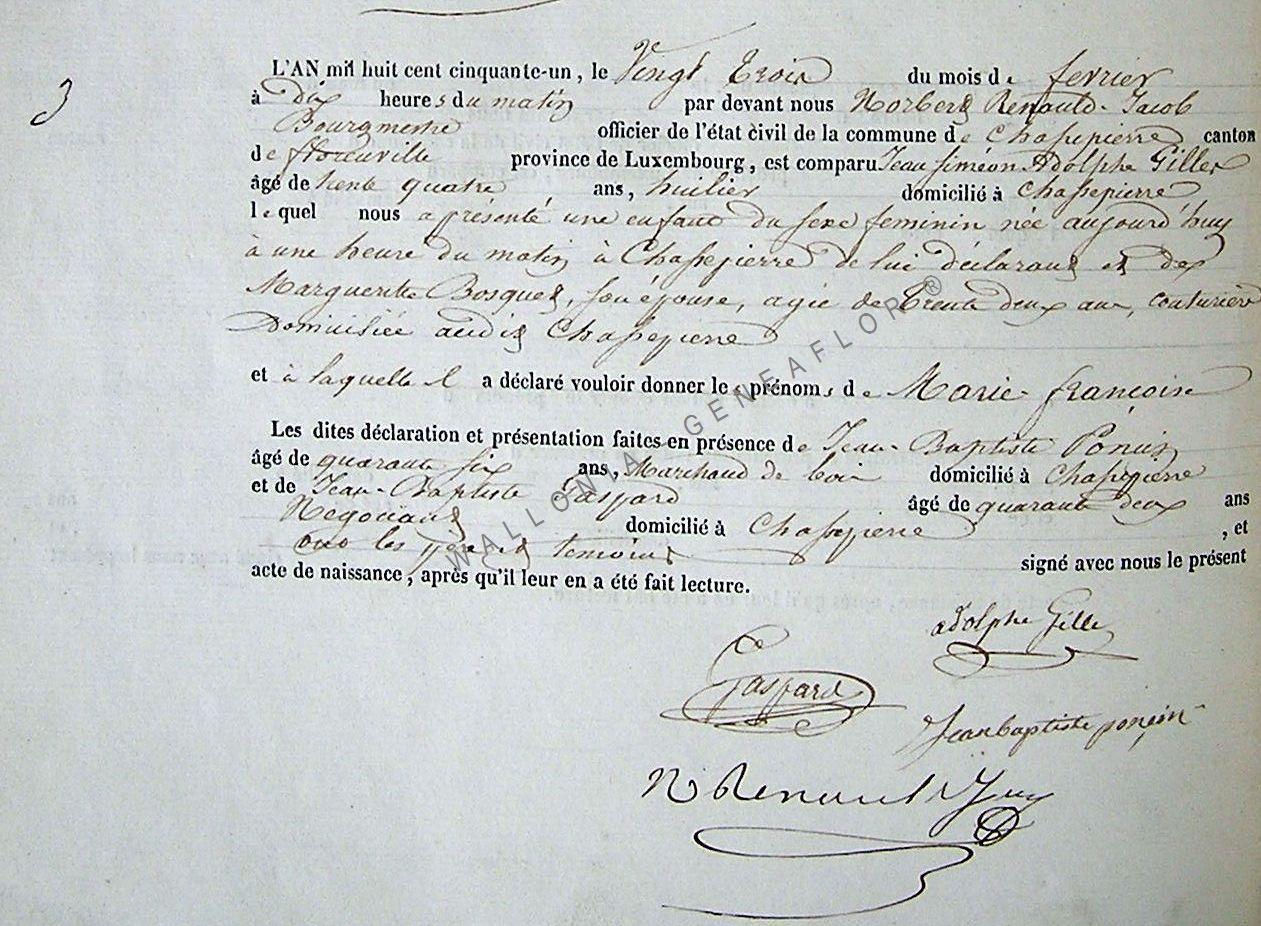 3
L'AN mil huit cent cinquante-un, le Vingt Trois du mois de fevrier
à dix heures du matin par devant nous Norbert Renauld-Jacob
Bourgmestre officier de l'état civil de la commune de Chassepierre canton
de florenville province de Luxembourg, est comparu Jean Siméon Adolphe Gilles
âgé de trente quatre ans, huilier domicilié à Chassepierre
lequel nous a présenté une enfant du sexe feminin née aujourd'huy
à une heure du matin à Chassepierre de lui déclarant et de
Marguerite Bosquet, son épouse, agée de Trente deux ans, couturière
Domiciliée audit Chassepierre
et à laquelle il a déclaré vouloir donner les prénoms de Marie-françoise
Les dites déclaration et présentation faites en présence de Jean-Baptiste
âgé de quarante six ans, Marchand de bois domicilié à Chassepierre
et de Jean-Baptiste Gaspard âgé de quarante deux ans
Négociant domicilié à Chassepierre, et
ont les père et temoins signé avec nous le présent
acte de naissance, après qu'il leur en a été fait lecture.
adolphe Gille
Gaspard
Jeanbaptiste ponçin
N Renauld
WALLONIA GENEAFLOR ®